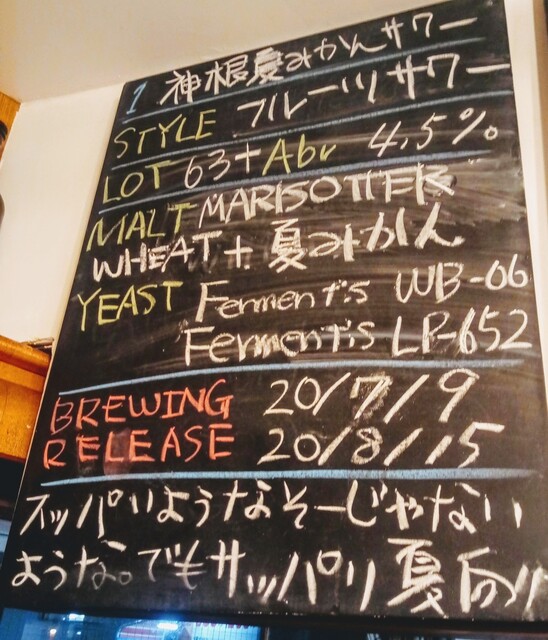 1 神根夏みかんサワー
STYLE フルーツサワー
LOT 63+ Abv 4.5%
MALT MARISOTTER
WHEAT + 夏みかん
YEAST Ferments WB-06
Ferments LP-652
BREWING 20/7/9
RELEASE 20/8/15
スッパいようなそーじゃない
ような。でもサッパリ夏向り